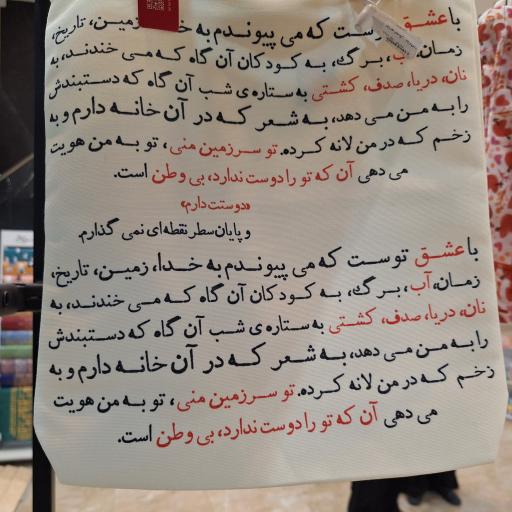 با عشق ست که می پیوندم به خد زمین، تاریخ،
زمان، ، برگ، به کودکان آن گاه که می خندند، به
نان، دریا، صدف، کشتی به ستاره‌ی شب آن گاه که دستبندش
را به من می دهد، به شعر که در آن خانه دارم و به
زخم که در من لانه کرده. تو سرزمین منی، تو به من هویت
می دهی آن که تو را دوست ندارد، بی وطن است.
«دوستت دارم»
و پایان سطر نقطه‌ای نمی گذارم.
با عشق توست که می پیوندم به خدا، زمین، تاریخ،
زمان، آب، برگ، به کودکان آن گاه که می خندند، به
نان، دریا، صدف، کشتی به ستاره‌ی شب آن گاه که دستبندش
را به من می دهد، به شعر که در آن خانه دارم و به
زخم که در من لانه کرده. تو سرزمین منی، تو به من هویت
می دهی آن که تو را دوست ندارد، بی وطن است.